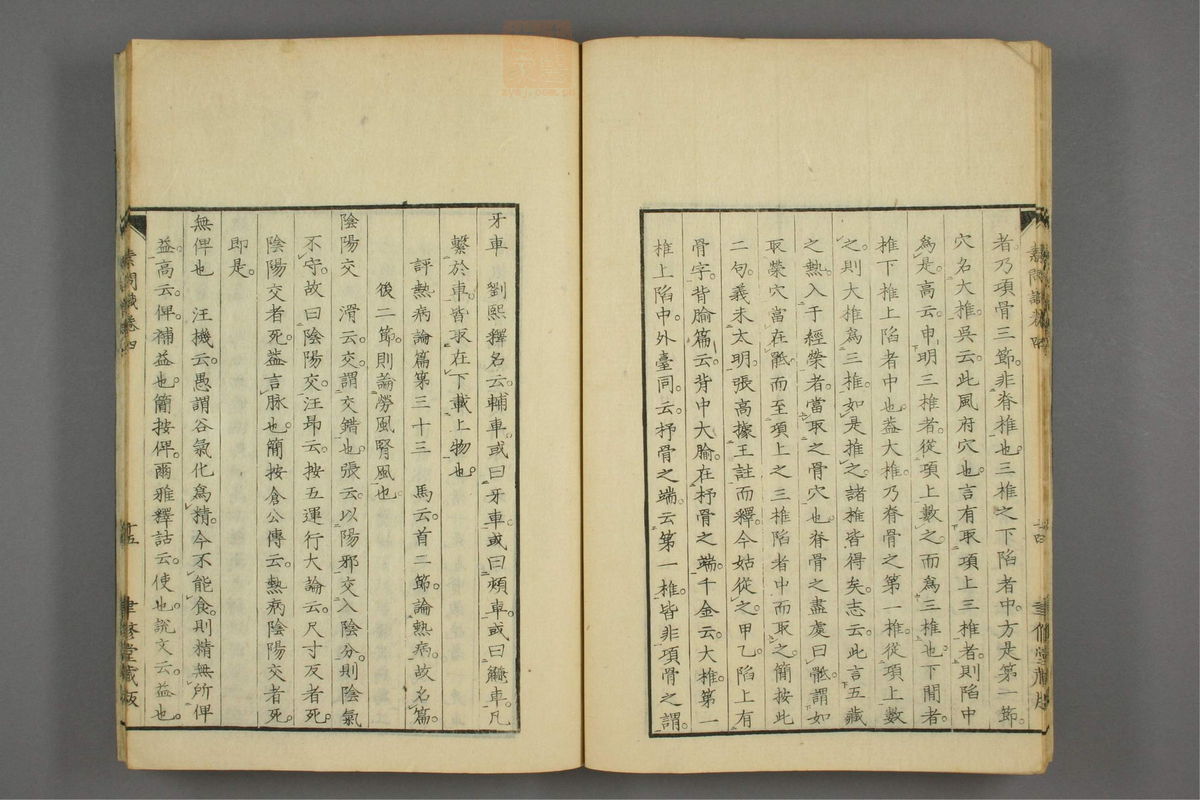 者乃項骨三節非脊椎也三椎之下陷者中方是第一節
穴名大椎吳云此風府穴也言有取項上三椎者則陷中
爲是高云申明三椎者從項上數之而爲三椎也下閒者
椎下椎上陷者中也蓋大椎乃脊骨之第一椎從項上數
之則大椎爲三椎如是推之諸椎皆得矣志云此言五藏
之熱入于經榮者當取之骨穴也脊骨之盡處曰骶謂如
取榮穴當在骶而至項上之三椎陷者中而取之簡按此
二句義未太明張高據王註而釋今姑從之甲乙陷上有
骨字背腧篇云背中大腧在杼骨之端千金云大椎第一
椎上陷中外臺同云杼骨之端云第一椎皆非項骨之謂
素問識卷四
十四
聿修堂藏版
牙車 劉熙釋名云輔車或曰牙車或曰頰車或曰鼸車凡
繫於車皆取在下載上物也
評熱病論篇第三十三 馬云首二節論熱病故名篇
後二節則論勞風腎風也
陰陽交 滑云交謂交錯也張云以陽邪交入陰分則陰氣
不守故曰陰陽交汪昂云按五運行大論云尺寸反者死
陰陽交者死蓋言脉也簡按倉公傳云熱病陰陽交者死
即是
無俾也 汪機云愚謂谷氣化爲精今不能食則精無所俾
益高云俾補益也簡按俾爾雅釋詁云使也說文云益也
素問識卷四
十五
聿修堂藏版